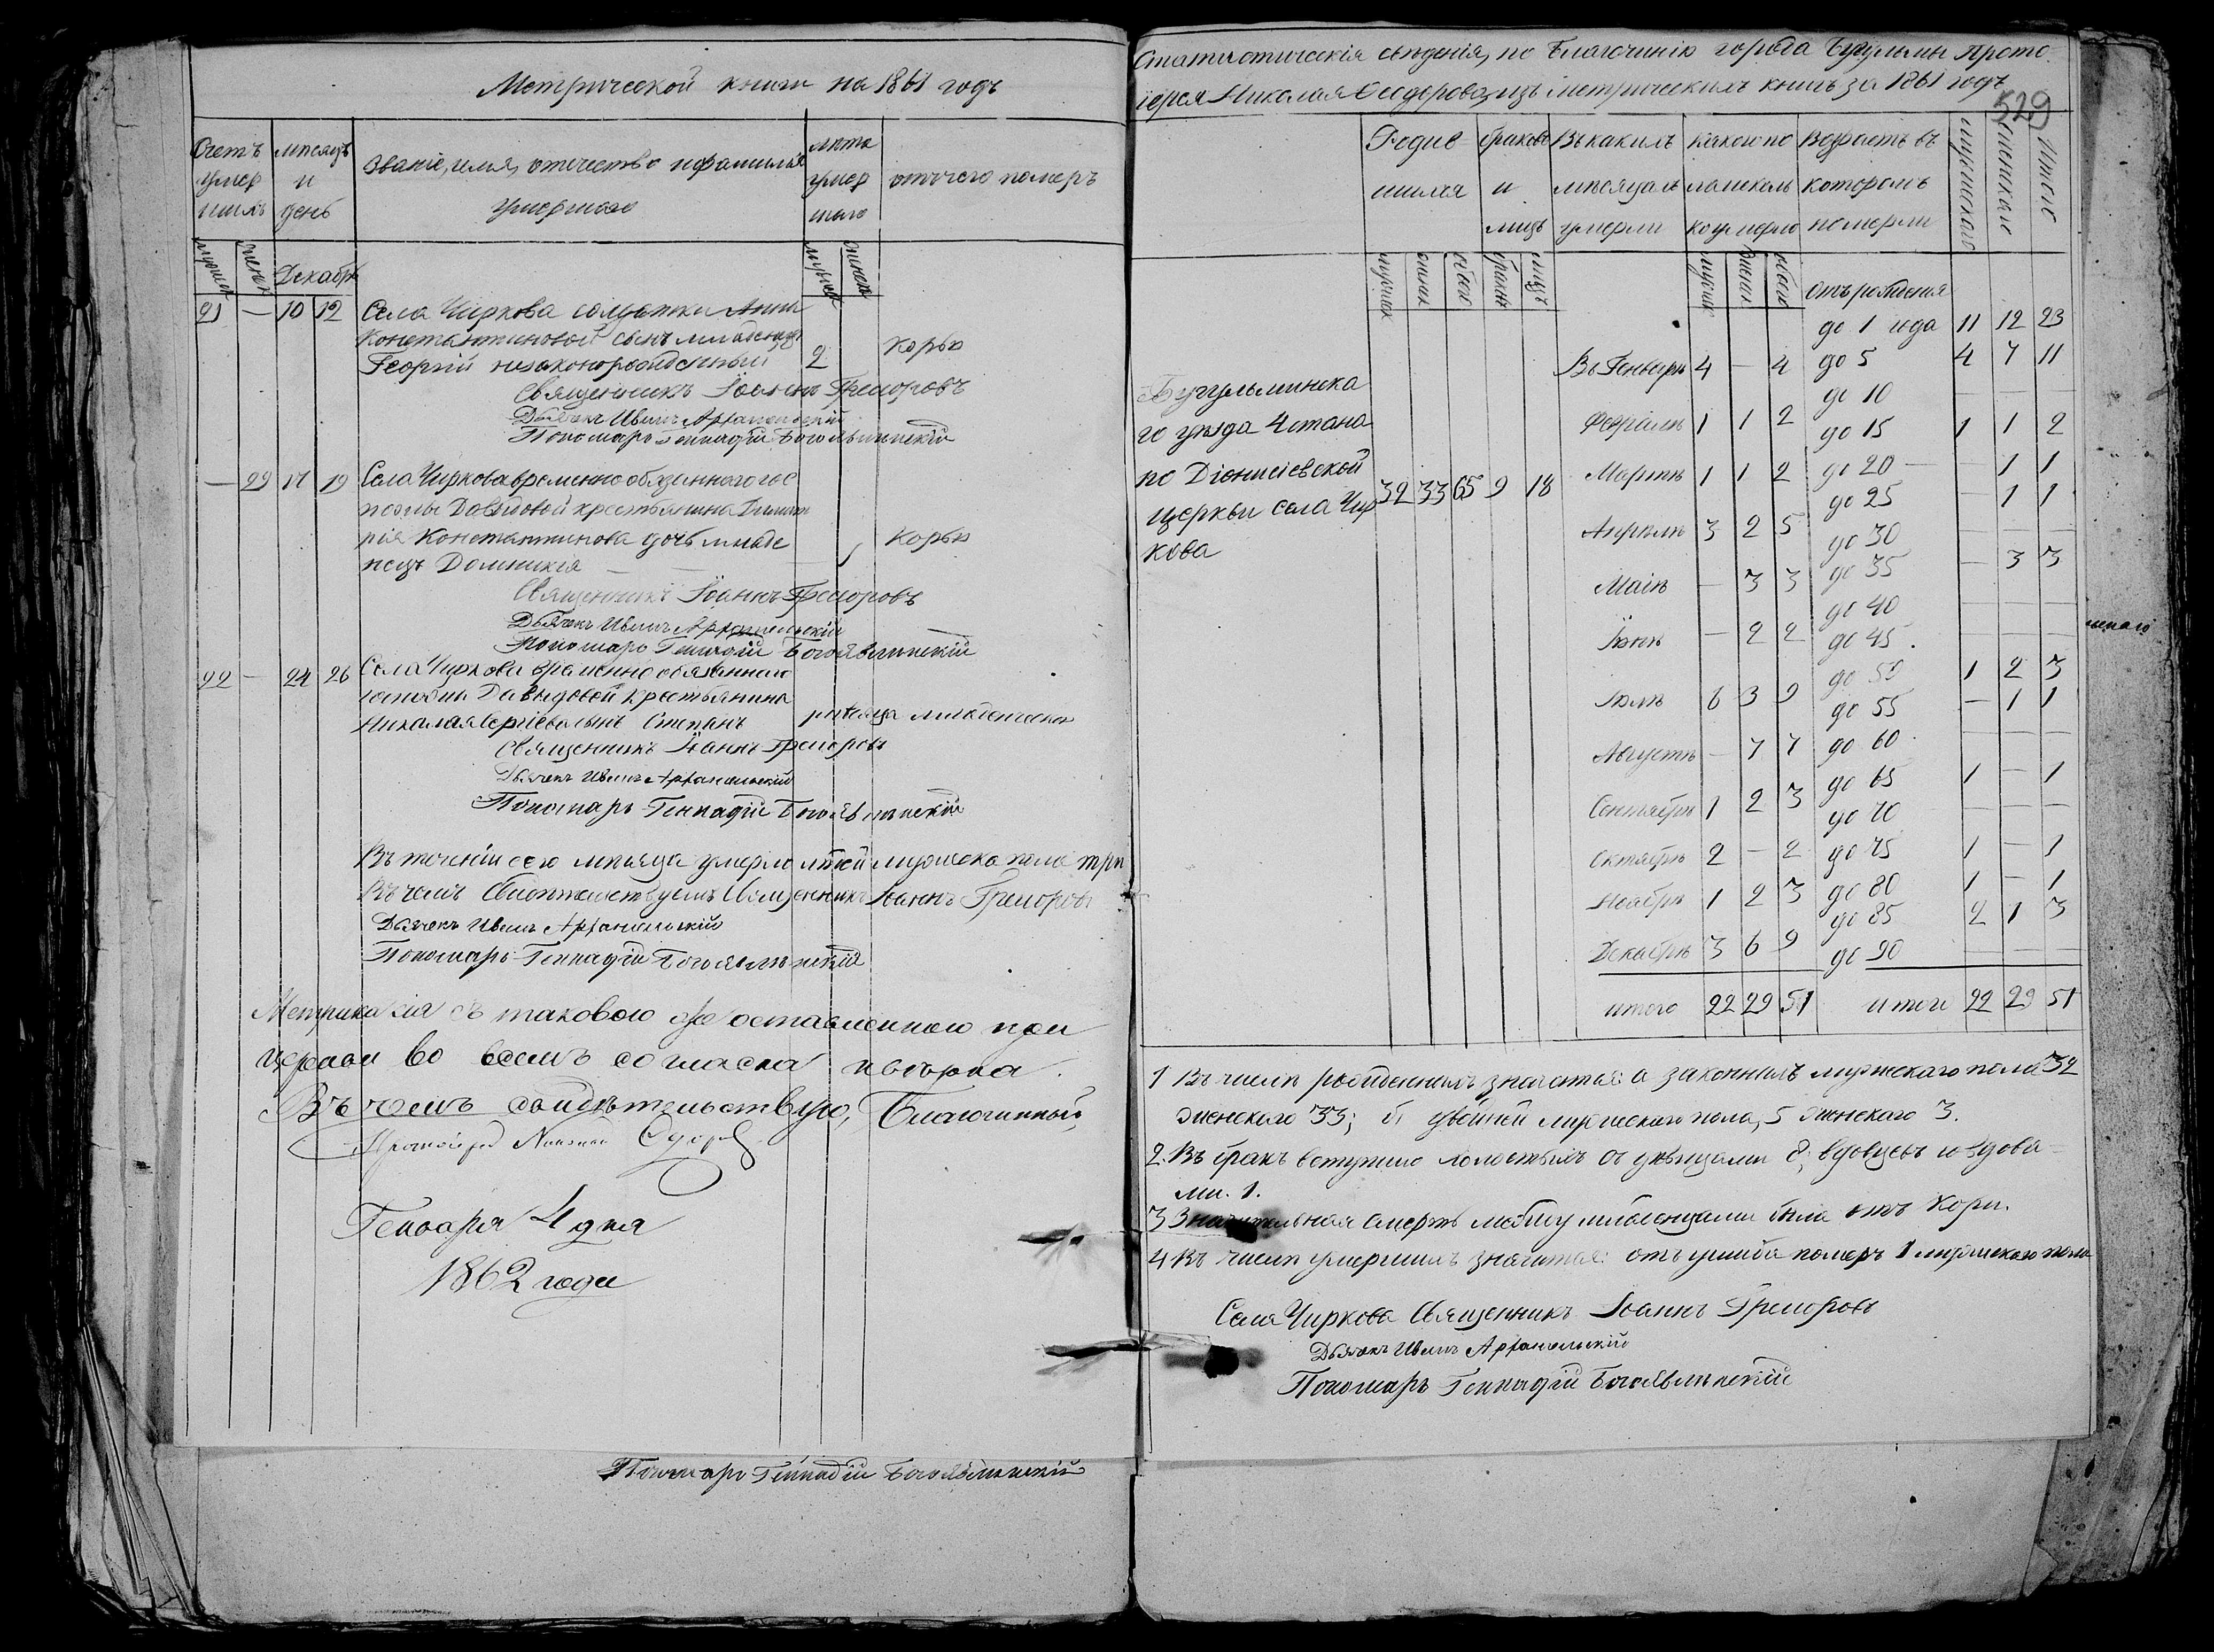 Метрической книги на 1861 годъ
Счетъ умер шихъ
мѣсяцъ и день
Званіе, имя, отчество и фамилія умершаго
лѣта умер шаго
отъ чего померъ
мужеск женск Декабрь мужеск женск
21 — 10 12 Села Чиркова солдатки Анны
Константиновой сынъ младенецъ
Георгій незаконорожденный 2 Корью
Священникъ Іоаннъ Григоровъ
Дьячекъ Иванъ Архангельскій
Пономарь Геннадій Богоявленскій
— 29 17 19 Села Чиркова временно обязаннаго гос
пожи Давыдовой крестьянина Димит
рія Константинова дочь младе Корью
нецъ Домникія
Священникъ Іоаннъ Григоровъ
Дьячекъ Иванъ Архангельскій
Пономарь Геннадій Богоявленскій
22 — 24 26 Села Чиркова временно обязаннаго
госпожи Давыдовой крестьянина
Николая Сергіева сынъ Степанъ мѣсяца младенческой
Священникъ Іоаннъ Григоровъ
Дьячекъ Иванъ Архангельскій
Пономарь Геннадій Богоявленскій
Въ теченіи сего мѣсяца умерло мужеска пола три
Въ чемъ свидѣтельствуемъ Священникъ Іоаннъ Григоровъ
Дьячекъ Иванъ Архангельскій
Пономарь Геннадій Богоявленскій
Метрика сія съ таковою же оставленною при
церкви во всемъ согласна и вѣрна.
Въ чемъ свидѣтельствую, Благочинный,
Протоіерей Николай Ѳедоровъ
Генваря 4 дня
1862 года
Пономарь Геннадій Богоявленскій
Статистическія свѣденія, по Благочинію города Бугульмы Прото
іерея Николая Ѳеодорова, изъ метрическихъ книгъ за 1861 годъ
529
Родив шихся
браковъ и лицъ
Въ какихъ мѣсяцахъ умерли
какого по ла и сколь ко умерло
Возрастъ въ которомъ померли
мужескаго
женскаго
Итого
мужеск женск обоего браковъ лицъ мужеск женск обоего
Отъ рожденія
до 1 года 11 12 23
Въ Генварѣ 4 — 4 до 5 4 7 11
Бугульминска
го уѣзда Чстана
по Діонисіевской
церкви села Чир
кова
32 33 65 9 18
до 10 — — —
Февралѣ 1 1 2 до 15 1 1 2
Мартѣ 1 1 2 до 20 — 1 1
до 25 — 1 1
Апрѣлѣ 3 2 5 до 30 — — —
Маіѣ — 3 3 до 35 — 3 3
до 40 — — —
Іюнѣ — 2 2 до 45 — — —
до 50 1 2 3
Іюлѣ 6 3 9 до 55 — 1 1
Августѣ — 7 7 до 60 — — —
до 65 1 — 1
Сентябрѣ 1 2 3 до 70 — — —
Октябрѣ 2 — 2 до 75 1 — 1
Ноябрѣ 1 2 3 до 80 1 — 1
до 85 2 1 3
Декабрѣ 3 6 9 до 90 — — —
итого 22 29 51 итого 22 29 51
1 Въ числѣ рожденныхъ значатся: а законныхъ мужескаго пола 32
женскаго 33; б, двойней мужескаго пола, 5 женскаго 3.
2. Въ бракъ вступило холостыхъ съ дѣвицами 8; вдовцевъ со вдова-
ми. 1.
3 Значительная смерть между младенцами была отъ Кори.
4 Въ числѣ умершихъ значатся: отъ ушиба померъ 1 мужескаго пола
Села Чиркова Священникъ Іоаннъ Григоровъ
Дьячекъ Иванъ Архангельскій
Пономарь Геннадій Богоявленскій